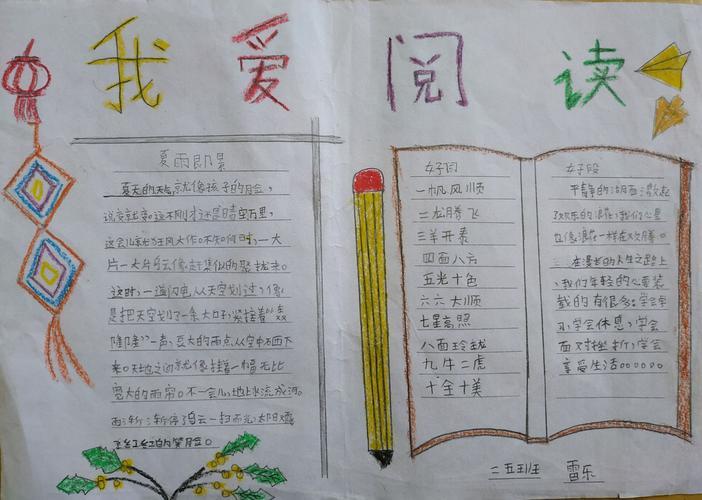 我爱阅读
夏雨即景
夏天的天气就像孩子的脸,
说变就变,这不刚才还是晴空万里,
这会儿就狂风大作。不知何时,一大
片一大片乌云像赶集似的聚拢来。
这时,一道闪电从天空划过,像
是把天空划了一条大口子,紧接着“轰
隆隆”一声,豆大的雨点从空中落下
来。天地之间就像挂着一幅无比
宽大的雨帘。不一会儿,地上水流成河。
雨渐渐停了,乌云一扫而光,太阳露
出红红的笑脸。
好词
一帆风顺
二龙腾飞
三羊开泰
四面八方
五光十色
六六大顺
七星高照
八面玲珑
九牛二虎
十全十美
好段
平静的湖面激起
欢乐的浪花,我们心里
也像浪花一样在欢腾。
在漫长的人生之路上
,我们年轻的心要装
载的有很多:学会
学会休息,学会
面对挫折,学会
享受生活。。。。。。
二五班 雷乐